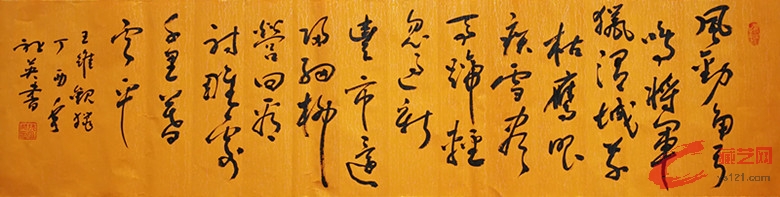 風勁角弓
鳴將軍
獵渭城草
枯鷹眼
疾雪盡
馬蹄輕
忽過新
豐市還
歸細柳
營回看
射雕處
千里暮
雲平
王維觀獵
丁酉年
英書
藏艺网